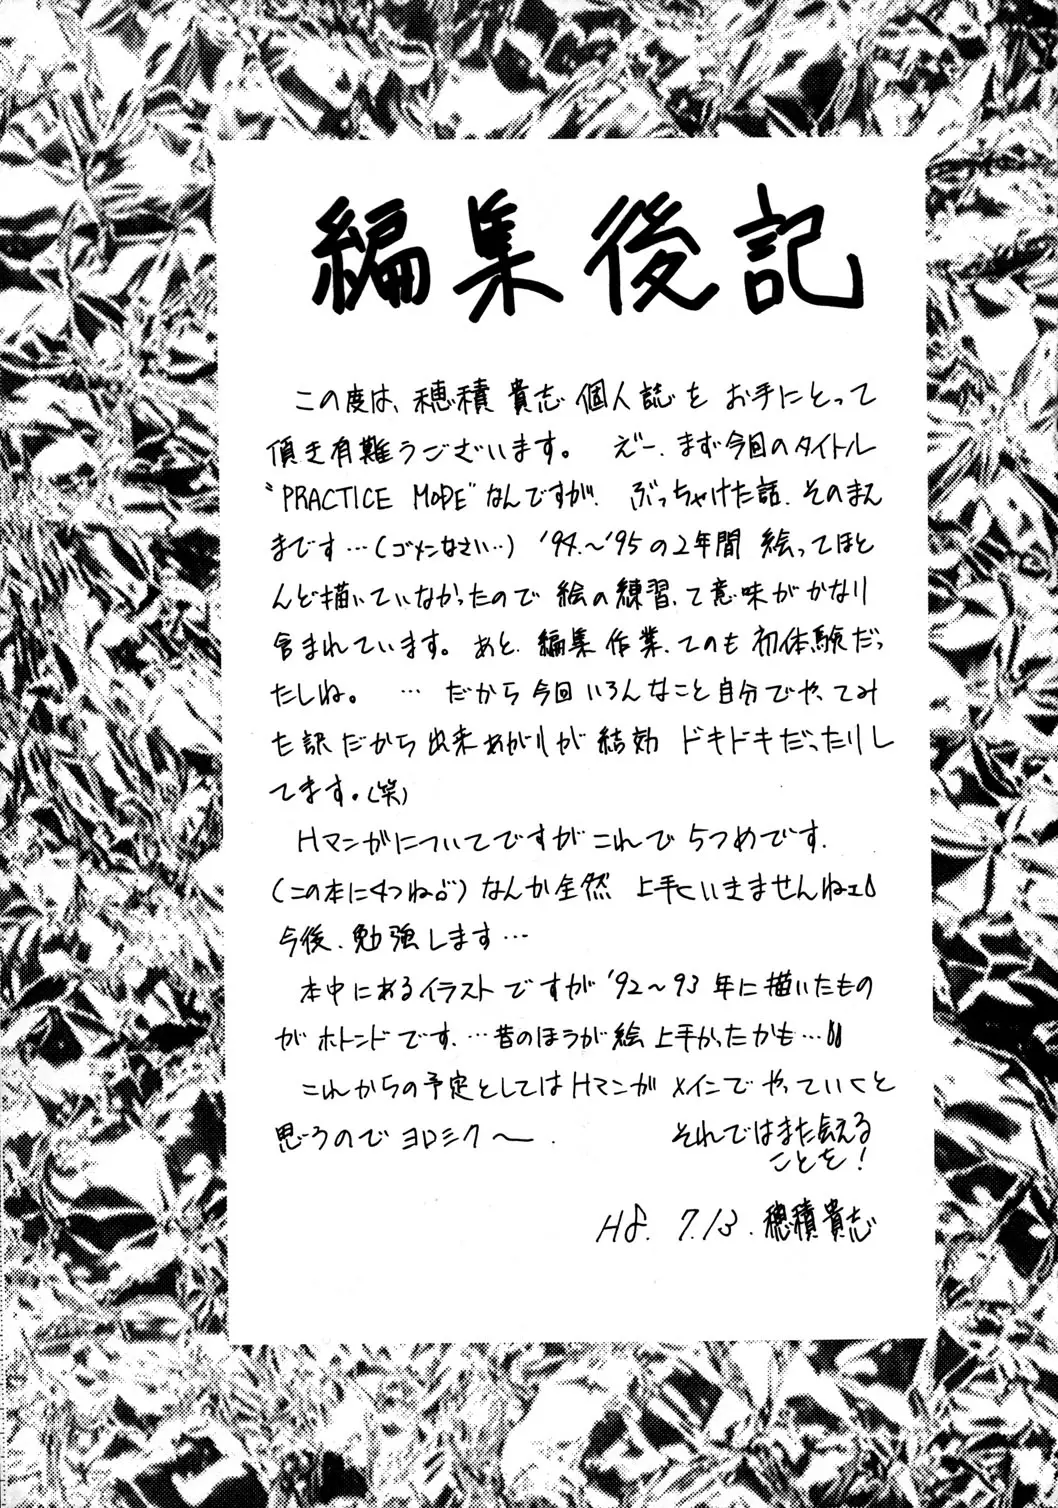 編集後記
この度は、穂積貴志個人誌をお手にとって
頂き有難うございます。 えー、まず今回のタイトル
"PRACTICE MODE"なんですが、ぶっちゃけた話、そのまん
まです…(ゴメンなさい…) '94.〜'95の2年間 絵ってほと
んど描いていなかったので絵の練習って意味がかなり
含まれています。あと、編集作業ってのも初体験だっ
たしね。 … だから今回いろんなこと自分でやってみ
た訳だから出来あがりが結効 ドキドキだったりし
てます。(笑)
Hマンガについてですがこれで5つめです.
(この本に4つね) なんか全然 上手くいきませんねェ
今後、勉強します…
本中にあるイラストですが'92〜93年に描いたもの
がホトンドです.…昔のほうが絵上手かったかも…
これからの予定としてはHマンガメインでやっていくと
思うのでヨロシク〜.
それではまた会える
ことを!
H8. 7.13. 穂積貴志